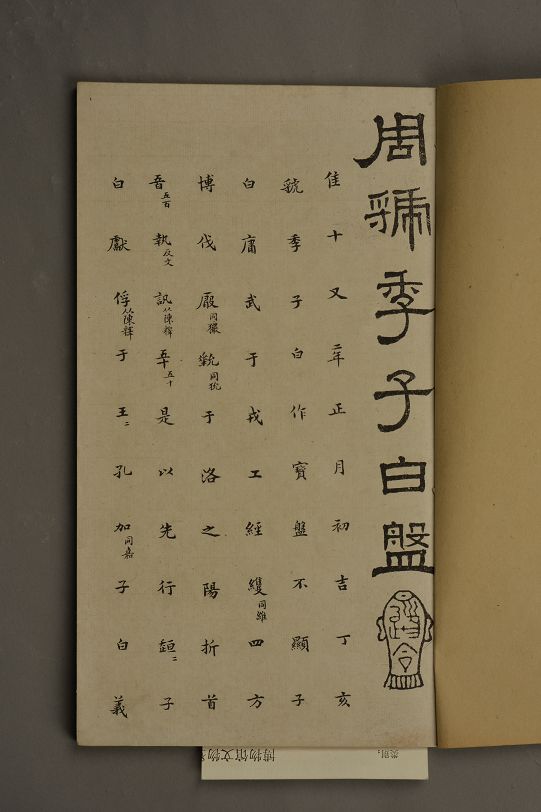 周虢季子白盤
隹十又二年正月初吉丁亥
虢季子白作寶盤不顯子
白庸武于戎工經縵同維四方
博伐厰同玁𤞤同狁于洛之陽折首
五百執反文訊从陳釋五十五十是以先行𧻚二子
白獻俘从陳釋于王二孔加同嘉子白義
博物馆文物
类别: